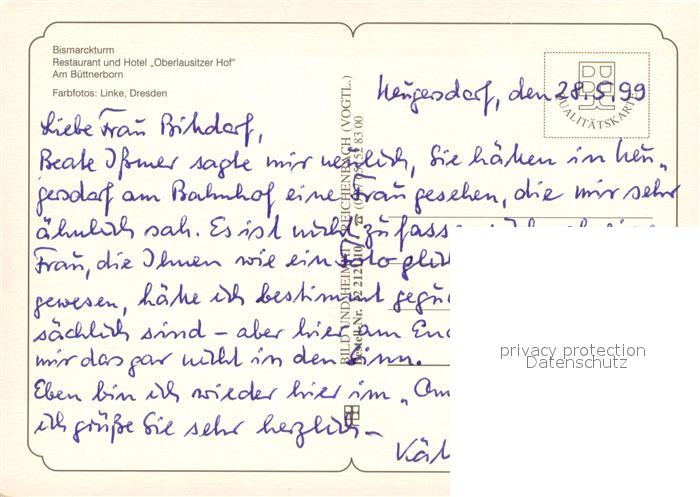 Bismarckturm
Restaurant und Hotel „Oberlausitzer Hof"
Am Büttnerborn
Farbfotos: Linke, Dresden
BILD UND HEIMAT REICHENBACH (VOGTL.)
QUALITÄTSKARTE
Neugersdorf, den 28.5.99
Liebe Frau
Beate Ißmer sagte mir neulich, Sie hätten in Neu„
gersdorf am Bahnhof eine Frau gesehen, die mir sehr
ähnlich sah. Es ist nicht zu fassen
Frau, die Ihnen wie ein Foto
gewesen, hätte ich bestimmt
sächlich sind – aber hier am
mir das gar nicht in den Sinn.
Eben bin ich wieder hier im
ich grüße Sie sehr herzlich –
privacy protection
Datenschutz